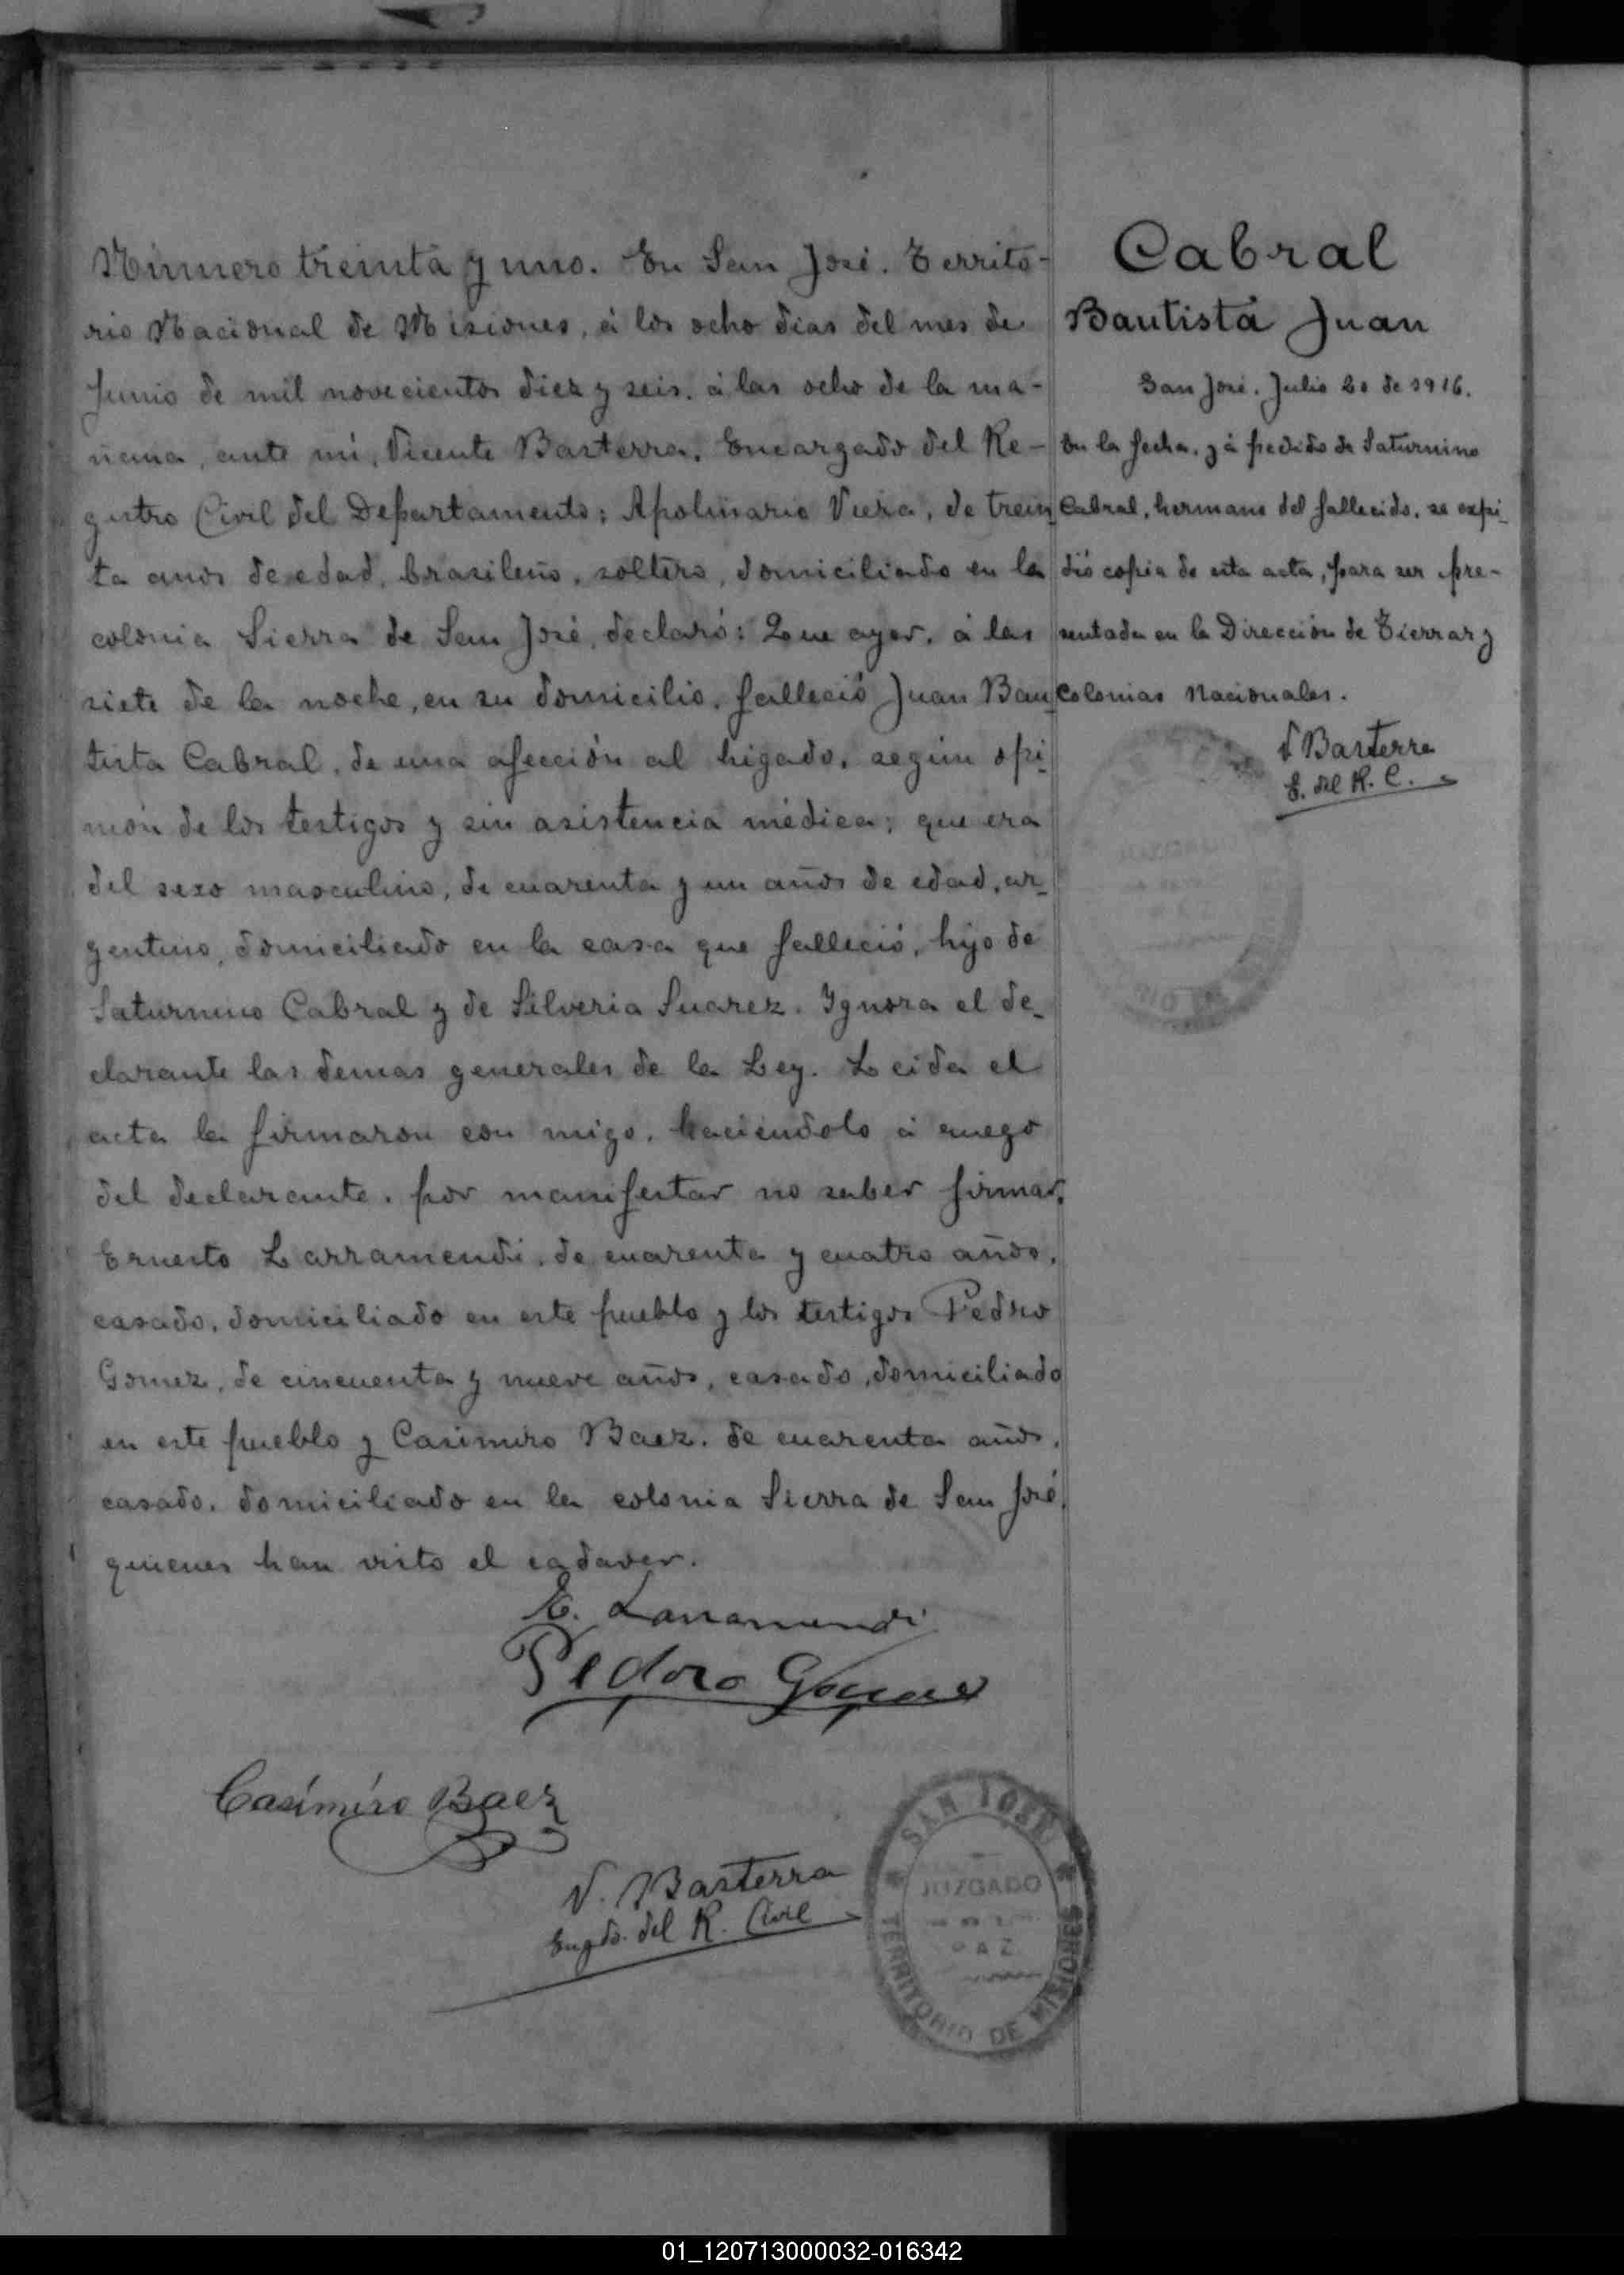 Número treinta y uno. En San José. Territo-
rio Nacional de Misiones, á los ocho dias del mes de
Junio de mil novecientos diez y seis. á las ocho de la ma-
ñana, ante mí, Vicente Basterra, Encargado del Re-
gistro Civil del Departamento; Apolinario Viera, de trein
ta anos de edad, brasileño, soltero, domiciliado en la
colonia Sierra de San José, declaró: Que ayer, á las
siete de la noche, en su domicilio, falleció Juan Bau_
tista Cabral, de una afección al higado, según opi_
nión de los testigos y sin asistencia médica; que era
del sexo masculino, de cuarenta y un años de edad, ar_
gentino, domiciliado en la casa que falleció, hijo de
Saturnino Cabral y de Silveria Suarez. Ignora el de_
clarante las demas generales de la Ley. Leida el
acta la firmaron con migo, haciendolo á ruego
del declarante, por manifestar no saber firmar,
Ernesto Larramendi, de cuarenta y cuatro años,
casado, domiciliado en este pueblo y los testigos Pedro
Gomez, de cincuenta y nueve años, casado, domiciliado
en este pueblo y Casimiro Baez, de cuarenta años,
casado, domiciliado en la colonia Sierra de San José,
quienes han visto el cadaver.
E. Larramendi
Pedro Gomez
Casimiro Baez
V. Basterra
Engdo. del R. Civil
SAN JOSE
JUZGADO
PAZ
TERRITORIO DE MISIONES
Cabral
Bautista Juan
San José. Julio 20 de 1916.
En la fecha, y á pedido de Saturnino
Cabral, hermano del fallecido, se expi_
dió copia de esta acta, para ser pre-
sentada en la Dirección de Tierras y
Colonias Nacionales.
V Basterra
E. del R. C.
01_120713000032-016342